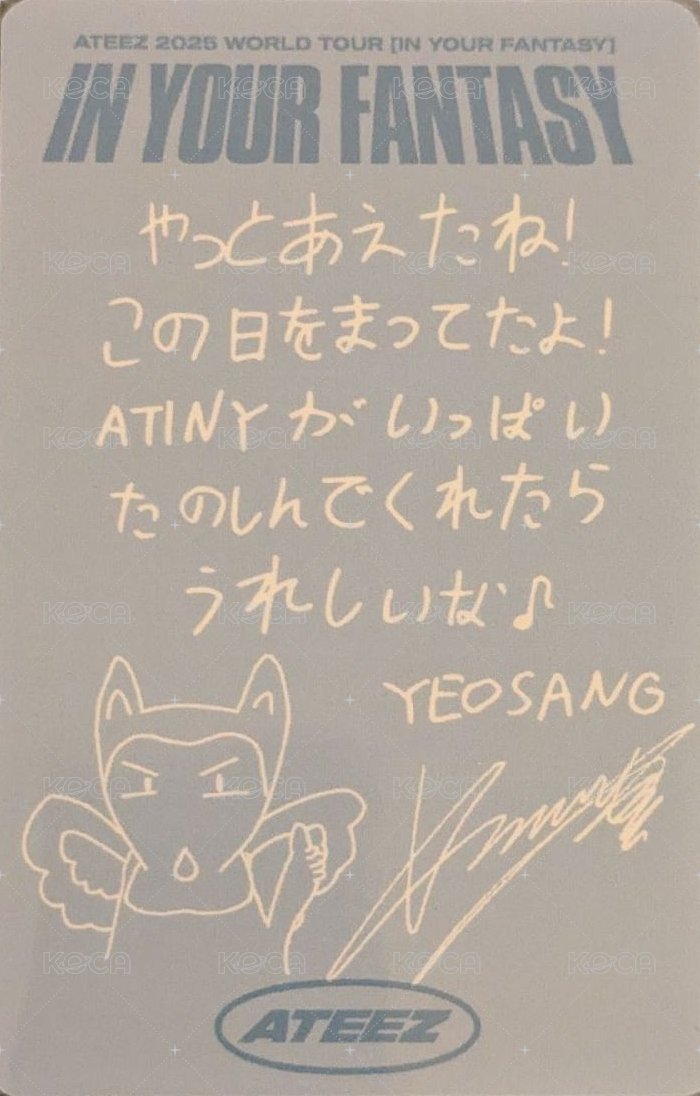 ATEEZ 2025 WORLD TOUR [IN YOUR FANTASY]
IN YOUR FANTASY
やっとあえたね!
この日をまってたよ!
ATINYがいっぱい
たのしんでくれたら
うれしいな♪
YEOSANG
ATEEZ
KOCA